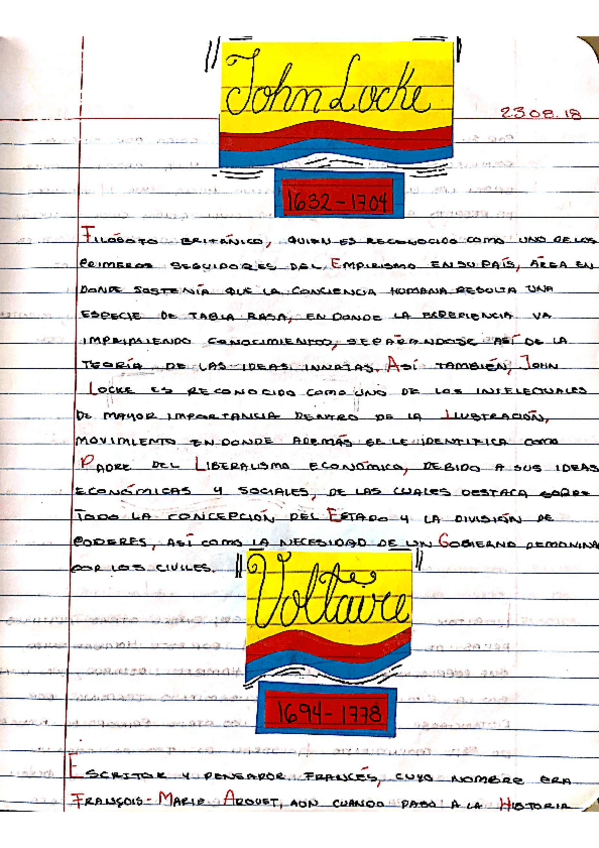 John Locke
23 08 18
1632-1704
FILÓSOFO BRITÁNICO, QUIEN ES RECONOCIDO COMO UNO DE LOS
PRIMEROS SEGUIDORES DEL EMPIRISMO EN SU PAÍS, ÁREA EN
DONDE SOSTENÍA QUE LA CONCIENCIA HUMANA RESULTA UNA
ESPECIE DE TABLA RASA, EN DONDE LA EXPERIENCIA VA
IMPRIMIENDO CONOCIMIENTO, SEPARANDOSE ASÍ DE LA
TEORÍA DE LAS IDEAS INNATAS. ASÍ TAMBIÉN, JOHN
LOCKE ES RECONOCIDO COMO UNO DE LOS INTELECTUALES
DE MAYOR IMPORTANCIA DENTRO DE LA ILUSTRACIÓN,
MOVIMIENTO EN DONDE ADEMÁS SE LE IDENTIFICA COMO
PADRE DEL LIBERALISMO ECONÓMICO, DEBIDO A SUS IDEAS
ECONÓMICAS Y SOCIALES, DE LAS CUALES DESTACA SOBRE
TODO LA CONCEPCIÓN DEL ESTADO Y LA DIVISIÓN DE
PODERES, ASÍ COMO LA NECESIDAD DE UN GOBIERNO
POR LOS CIVILES.
Voltaire
1694-1778
ESCRITOR Y PENSADOR FRANCÉS, CUYO NOMBRE ERA
FRANÇOIS-MARIE AROUET, AUN CUANDO PASO A LA HISTORIA